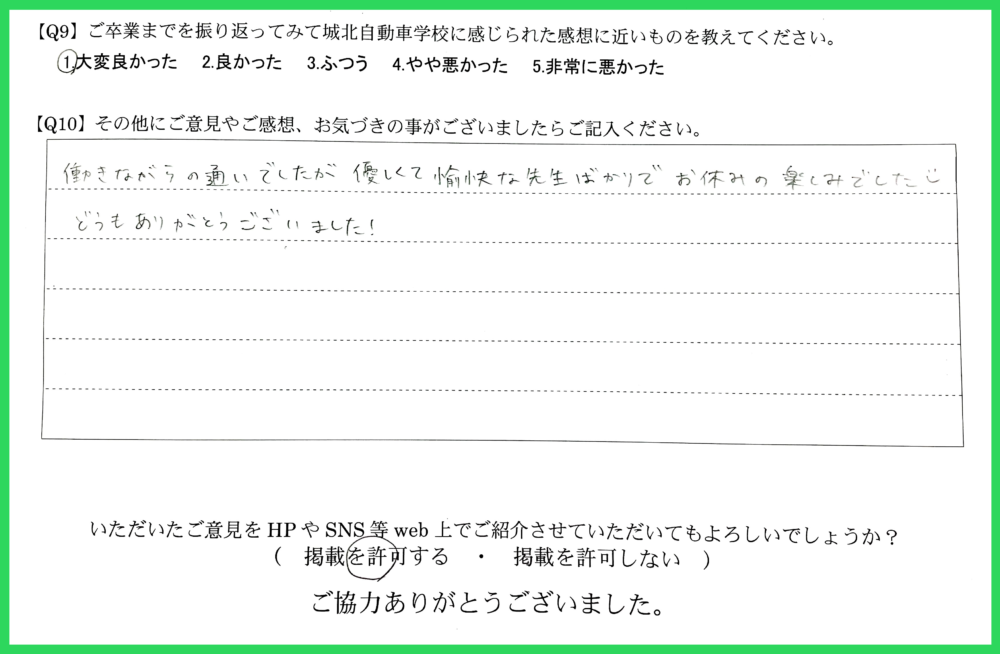 【Q9】ご卒業までを振り返ってみて城北自動車学校に感じられた感想に近いものを教えてください。
1.大変良かった 2.良かった 3.ふつう 4.やや悪かった 5.非常に悪かった
【Q10】その他にご意見やご感想、お気づきの事がございましたらご記入ください。
働きながらの通いでしたが 優しくて愉快な先生ばかりで お休みの楽しみでした
どうもありがとうございました!
いただいたご意見を HP や SNS 等 web 上でご紹介させていただいてもよろしいでしょうか?
( 掲載を許可する ・ 掲載を許可しない )
ご協力ありがとうございました。